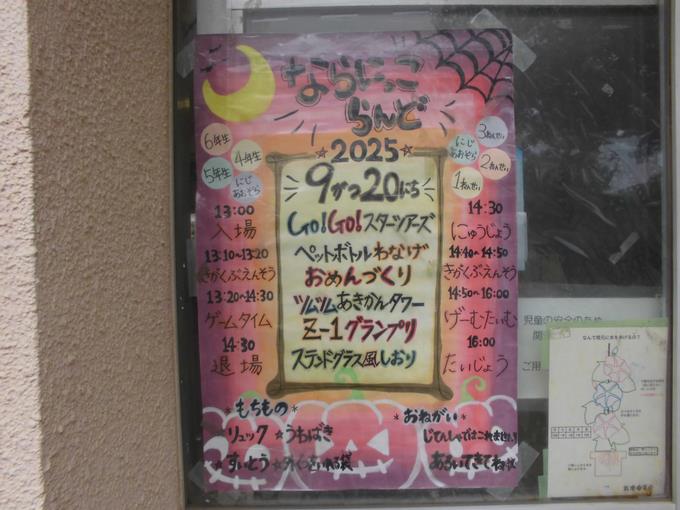 ならにっこ
らんど
☆2025☆
9がつ20にち
6年生
4年生
5年生
にじ
あおぞら
13:00
入場
13:10~13:20
きがくぶえんそう
13:20~14:30
ゲームタイム
14:30
退場
Go!Go!スターツアーズ
ペットボトルわなげ
おめんづくり
ツムツムあきかんタワー
Z-1グランプリ
ステンドグラス風しおり
3ねんせい
にじ
あおぞら
2ねんせい
1ねんせい
14:30
にゅうじょう
14:40~14:50
きがくぶえんそう
14:50~16:00
げーむたいむ
16:00
たいじょう
*もちもの*
☆リュック ☆うわばき
☆すいとう ☆外くつをいれる袋
*おねがい*
じてんしゃではこれません!
あるいてきてね
児童の安全のため
ご用